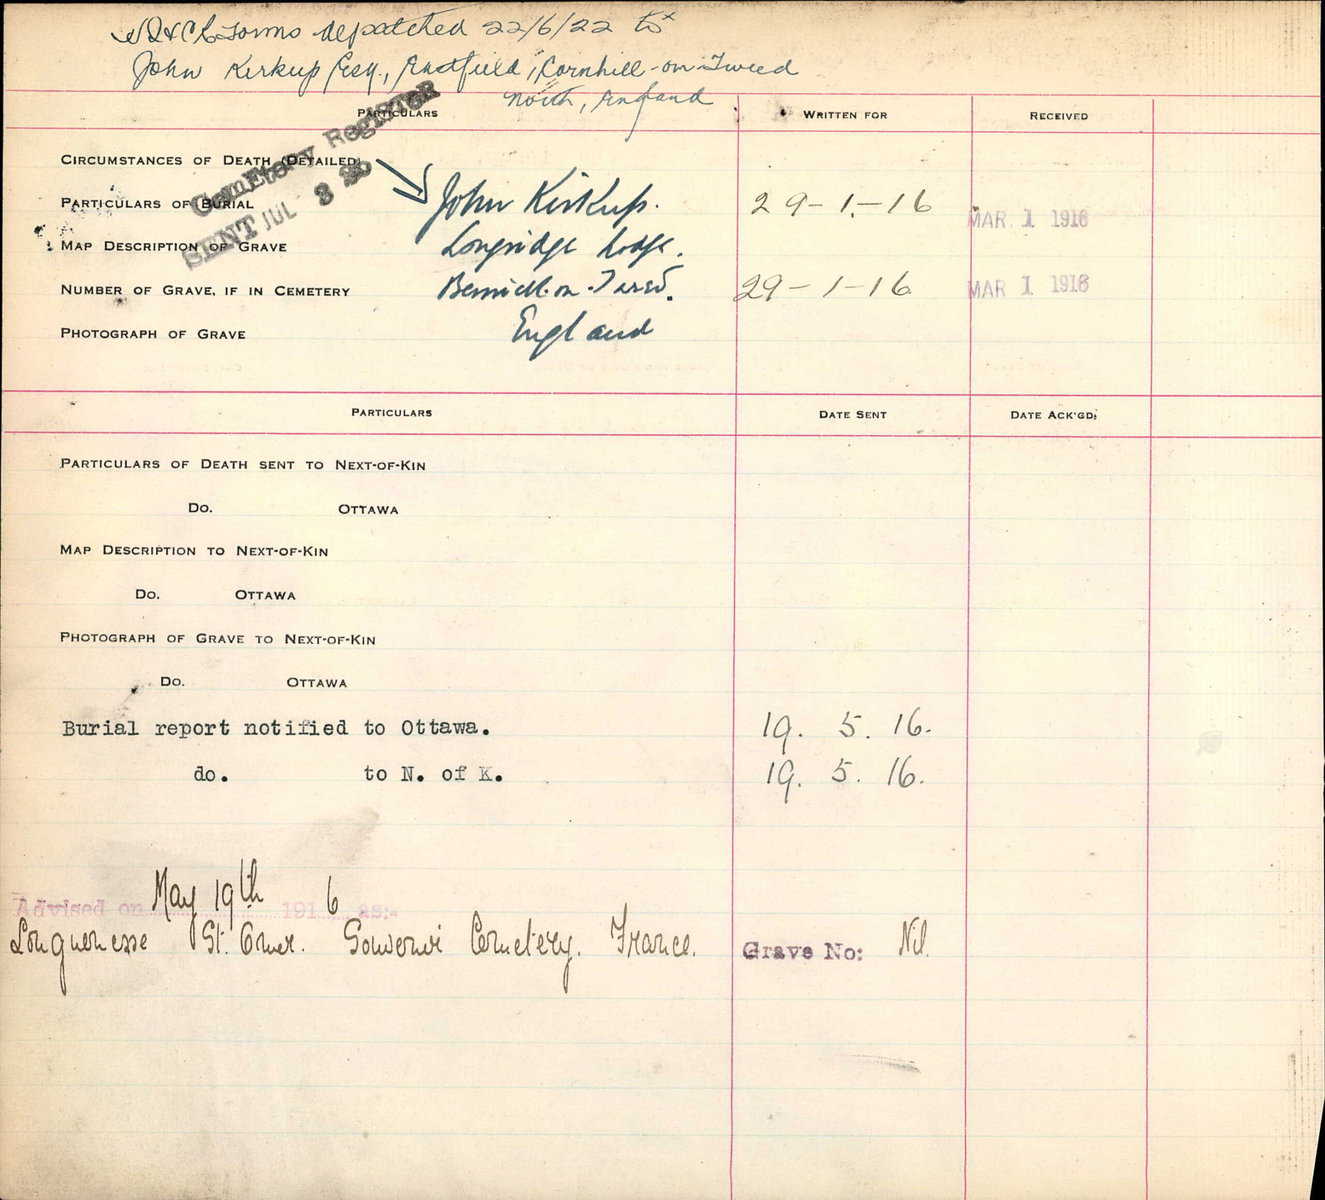 Forms depatched 22/6/22 to
John Kirkup Esq., Eastfield, Cornhill-on-Tweed
North, England
PARTICULARS WRITTEN FOR RECEIVED
CEMETERY REGISTER
SENT JUL 3
CIRCUMSTANCES OF DEATH (DETAILED)
PARTICULARS OF BURIAL John Kirkup. 29-1-16 MAR 1 1916
MAP DESCRIPTION OF GRAVE Longridge Lodge.
NUMBER OF GRAVE, IF IN CEMETERY Berwick-on-Tweed. 29-1-16 MAR 1 1916
PHOTOGRAPH OF GRAVE England
PARTICULARS DATE SENT DATE ACK'GD;
PARTICULARS OF DEATH SENT TO NEXT-OF-KIN
DO. OTTAWA
MAP DESCRIPTION TO NEXT-OF-KIN
DO. OTTAWA
PHOTOGRAPH OF GRAVE TO NEXT-OF-KIN
DO. OTTAWA
Burial report notified to Ottawa. 19. 5. 16.
do. to N. of K. 19. 5. 16.
Advised on May 19th 1916 as:-
Longuenesse St. Omer. Souvenir Cemetery. France. Grave No: Nil.